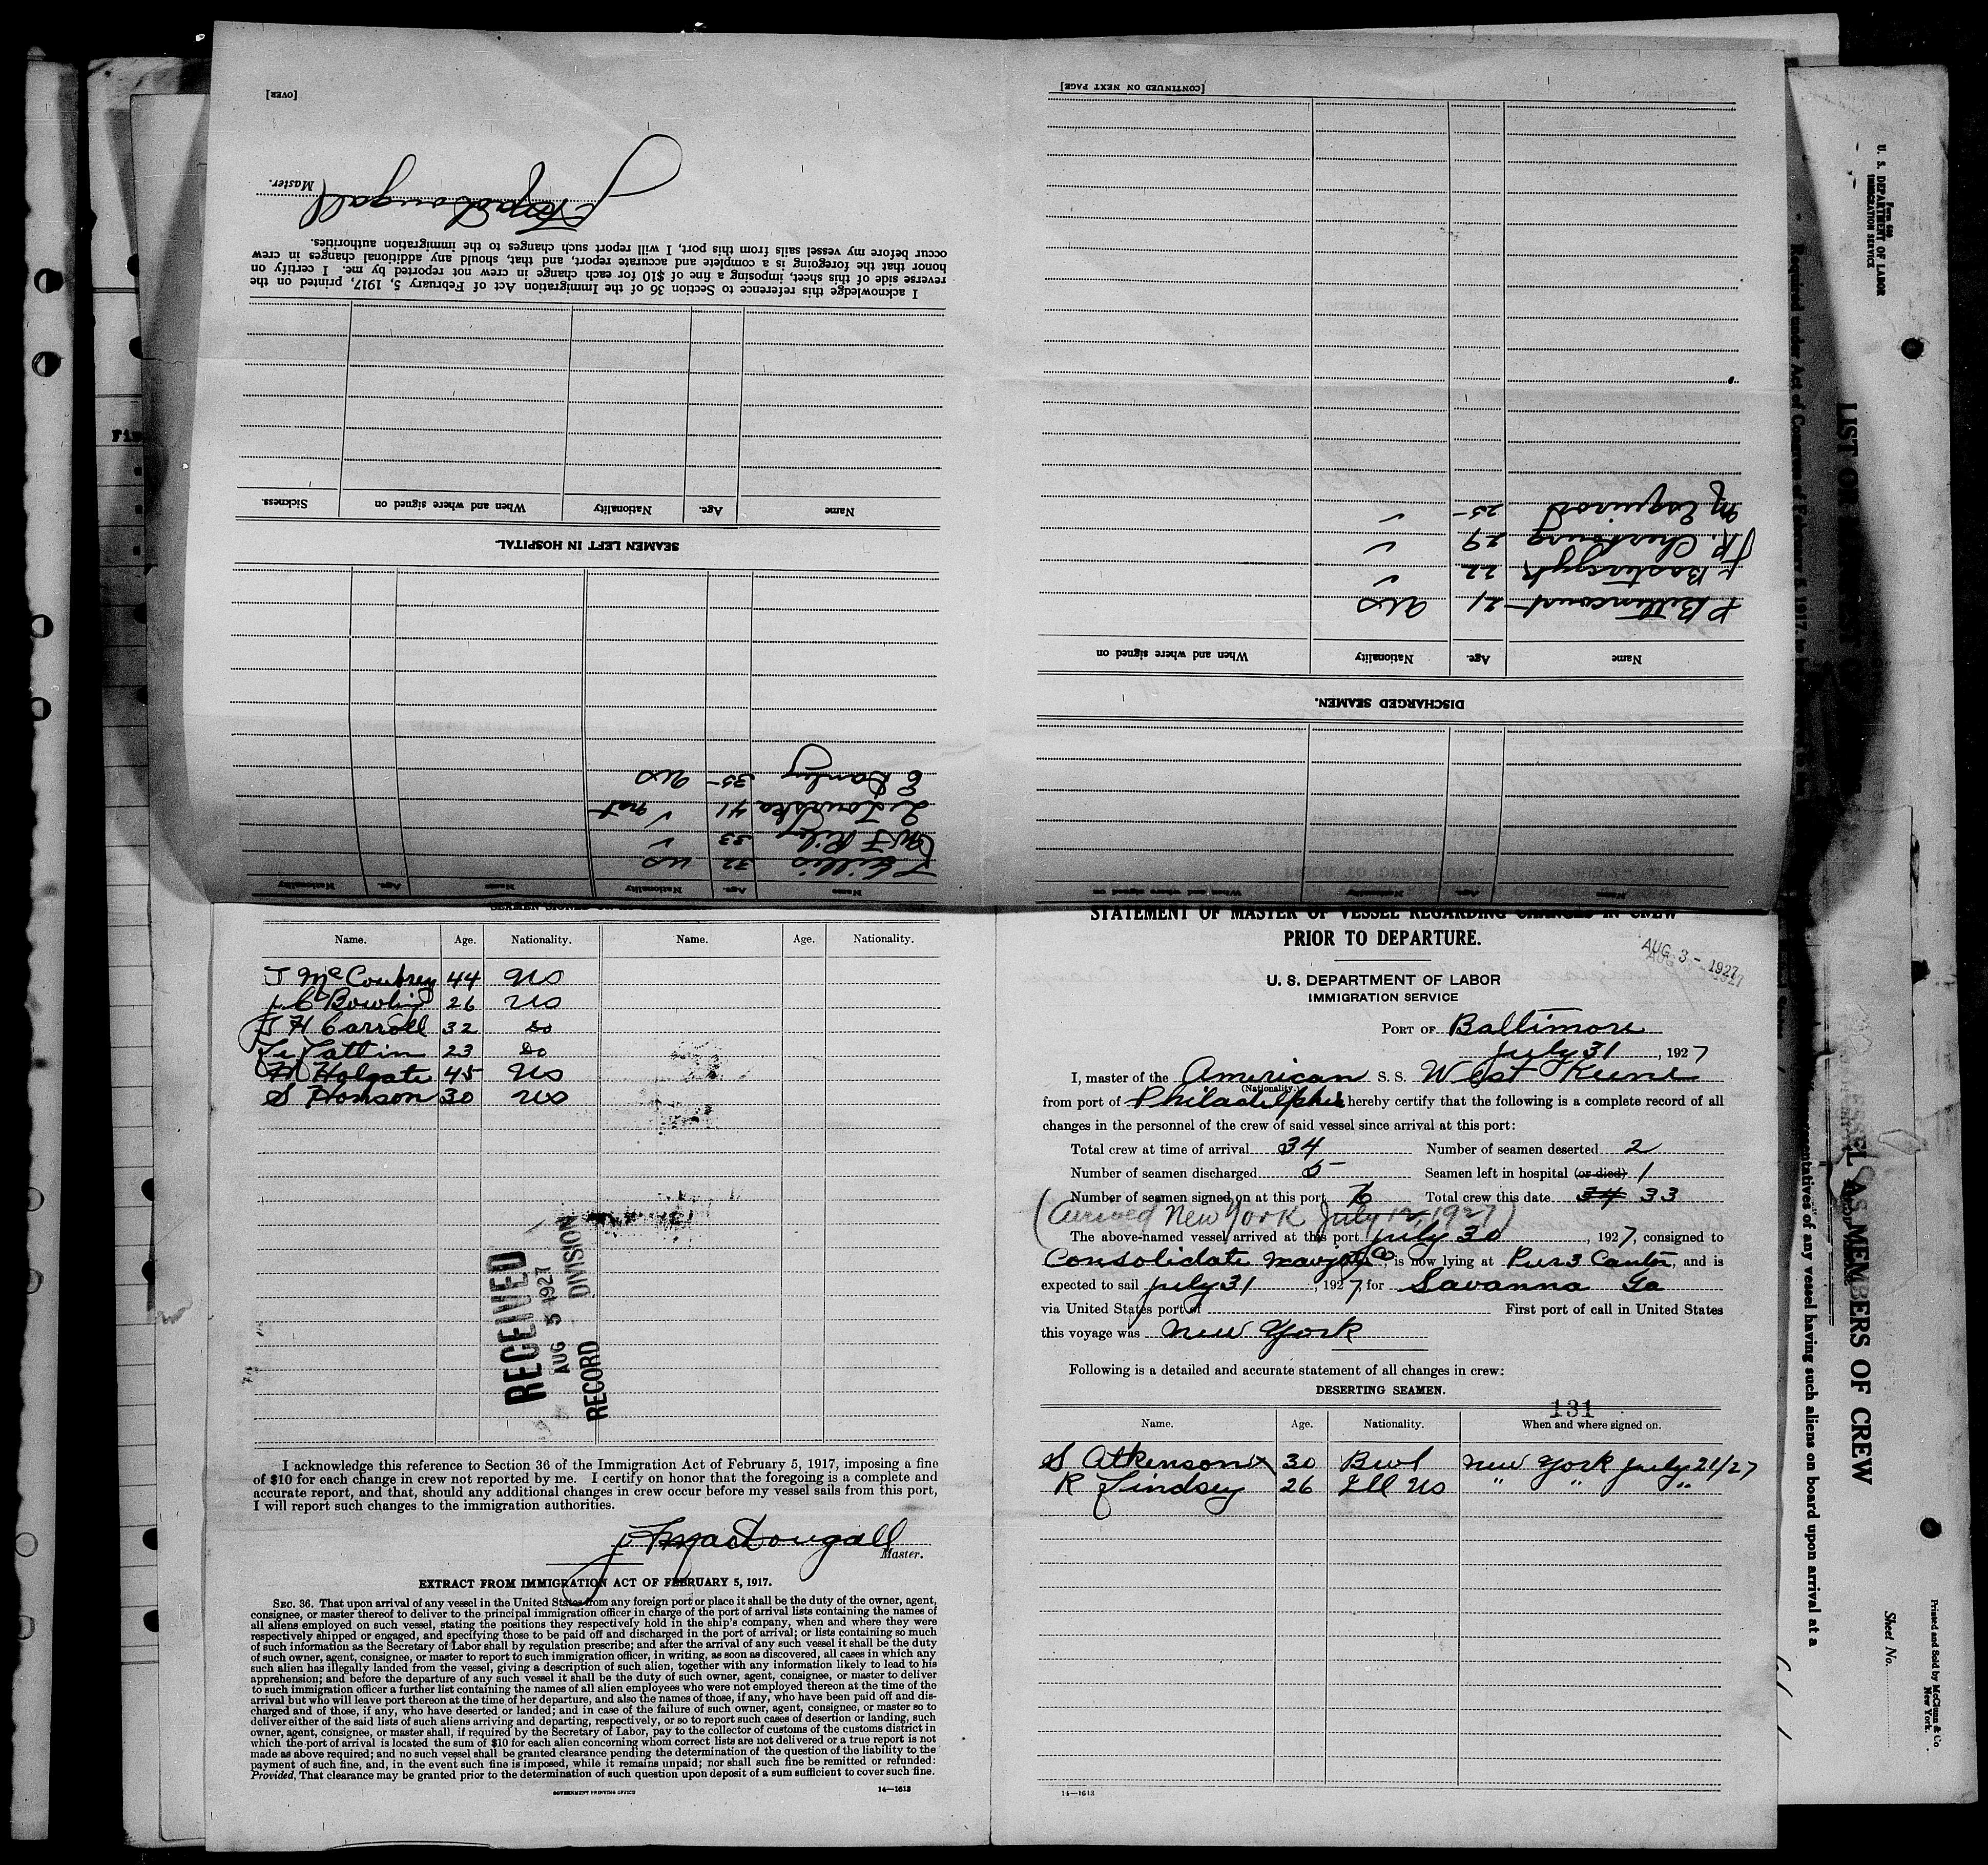 [OVER]
Master.
J F MacDougall
I acknowledge this reference to Section 36 of the Immigration Act of February 5, 1917, printed on the
reverse side of this sheet, imposing a fine of $10 for each change in crew not reported by me. I certify on
honor that the foregoing is a complete and accurate report, and that, should any additional changes in crew
occur before my vessel sails from this port, I will report such changes to the immigration authorities.
Name Age. Nationality When and where signed on Sickness.
SEAMEN LEFT IN HOSPITAL.
E Danley 35 US
41 nat
W F Riley 33 ✓
J Gillis 32 US
Name Age. Nationality Name Age. Nationality
[CONTINUED ON NEXT PAGE]
M Esquirol 25 ✓
R. Cherbourg 29 ✓
22 ✓
P Bettencourt 21 US
Name Age. Nationality When and where signed on
DISCHARGED SEAMEN.
Name Age. Nationality When and where signed on
Name. Age. Nationality. Name. Age. Nationality.
J McCoubrey 44 US
J C Bowling 26 US
J H Carroll 32 Do
Tattin 23 Do
M Holgate 45 US
S Homson 30 US
RECEIVED
AUG 5 1927
RECORD DIVISION
I acknowledge this reference to Section 36 of the Immigration Act of February 5, 1917, imposing a fine
of $10 for each change in crew not reported by me. I certify on honor that the foregoing is a complete and
accurate report, and that, should any additional changes in crew occur before my vessel sails from this port,
I will report such changes to the immigration authorities.
J F MacDougall
Master.
EXTRACT FROM IMMIGRATION ACT OF FEBRUARY 5, 1917.
SEC. 36. That upon arrival of any vessel in the United States from any foreign port or place it shall be the duty of the owner, agent,
consignee, or master thereof to deliver to the principal immigration officer in charge of the port of arrival lists containing the names of
all aliens employed on such vessel, stating the positions they respectively hold in the ship's company, when and where they were
respectively shipped or engaged, and specifying those to be paid off and discharged in the port of arrival; or lists containing so much
of such information as the Secretary of Labor shall by regulation prescribe; and after the arrival of any such vessel it shall be the duty
of such owner, agent, consignee, or master to report to such immigration officer, in writing, as soon as discovered, all cases in which any
such alien has illegally landed from the vessel, giving a description of such alien, together with any information likely to lead to his
apprehension; and before the departure of any such vessel it shall be the duty of such owner, agent, consignee, or master to deliver
to such immigration officer a further list containing the names of all alien employees who were not employed thereon at the time of the
arrival but who will leave port thereon at the time of her departure, and also the names of those, if any, who have been paid off and dis-
charged and of those, if any, who have deserted or landed; and in case of the failure of such owner, agent, consignee, or master so to
deliver either of the said lists of such aliens arriving and departing, respectively, or so to report such cases of desertion or landing, such
owner, agent, consignee, or master shall, if required by the Secretary of Labor, pay to the collector of customs of the customs district in
which the port of arrival is located the sum of $10 for each alien concerning whom correct lists are not delivered or a true report is not
made as above required; and no such vessel shall be granted clearance pending the determination of the question of the liability to the
payment of such fine, and, in the event such fine is imposed, while it remains unpaid; nor shall such fine be remitted or refunded:
Provided, That clearance may be granted prior to the determination of such question upon deposit of a sum sufficient to cover such fine.
GOVERNMENT PRINTING OFFICE 14—1613
STATEMENT OF MASTER OF VESSEL REGARDING CHANGES IN CREW
PRIOR TO DEPARTURE.
AUG 3 - 1927
U. S. DEPARTMENT OF LABOR
IMMIGRATION SERVICE
PORT OF Baltimore
July 31, 1927
I, master of the American S. S. West Kuni
(Nationality.)
from port of Philadelphia hereby certify that the following is a complete record of all
changes in the personnel of the crew of said vessel since arrival at this port:
Total crew at time of arrival 34 Number of seamen deserted 2
Number of seamen discharged 5 Seamen left in hospital (or died) 1
Number of seamen signed on at this port 6 Total crew this date 34 33
(Arrived New York July 12, 1927)
The above-named vessel arrived at this port July 30, 1927, consigned to
Consolidate Co, is now lying at Pier 3 Canton, and is
expected to sail July 31, 1927, for Savanna Ga
via United States port of First port of call in United States
this voyage was New York
Following is a detailed and accurate statement of all changes in crew:
DESERTING SEAMEN.
131
Name. Age. Nationality. When and where signed on.
S Atkinson x 30 New York July 21/27
R Lindsey 26 Ill US " " "
14—1613
Form 689
U. S. DEPARTMENT OF LABOR
IMMIGRATION SERVICE
Required under Act of Congress of February 5, 1917
representatives of any vessel having such aliens on board upon arrival at a
LIST OR
VESSEL AS MEMBERS OF CREW
Sheet No.
Printed and Sold by McClunn & Co
New York.